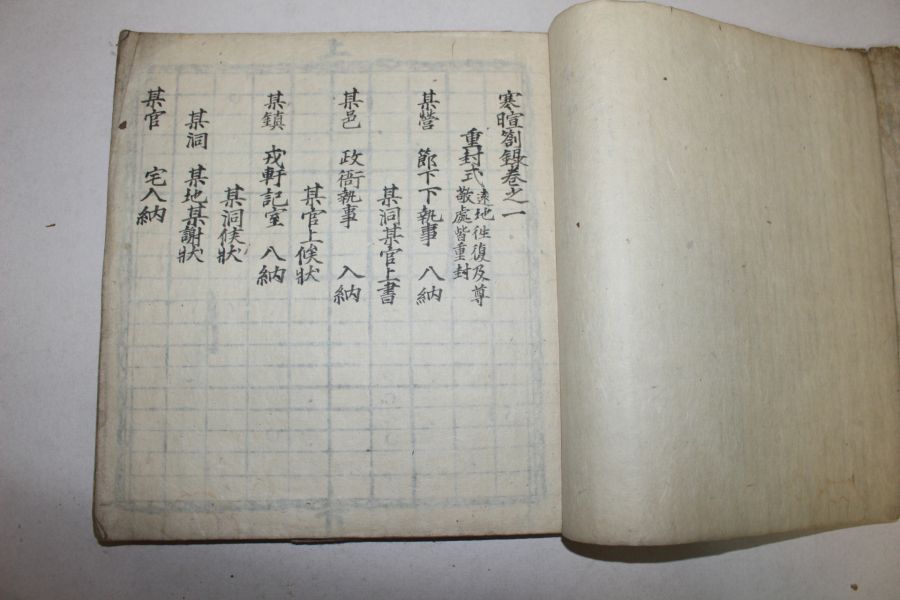 寒暄劄錄卷之一
重封式 遠地往復及尊敬處皆重封
某營 節下下執事 入納
某洞某官上書
某邑 政衙執事 入納
某官上候狀
某鎭 戎軒記室 入納
某洞候狀
某洞 某地某謝狀
某官 宅入納